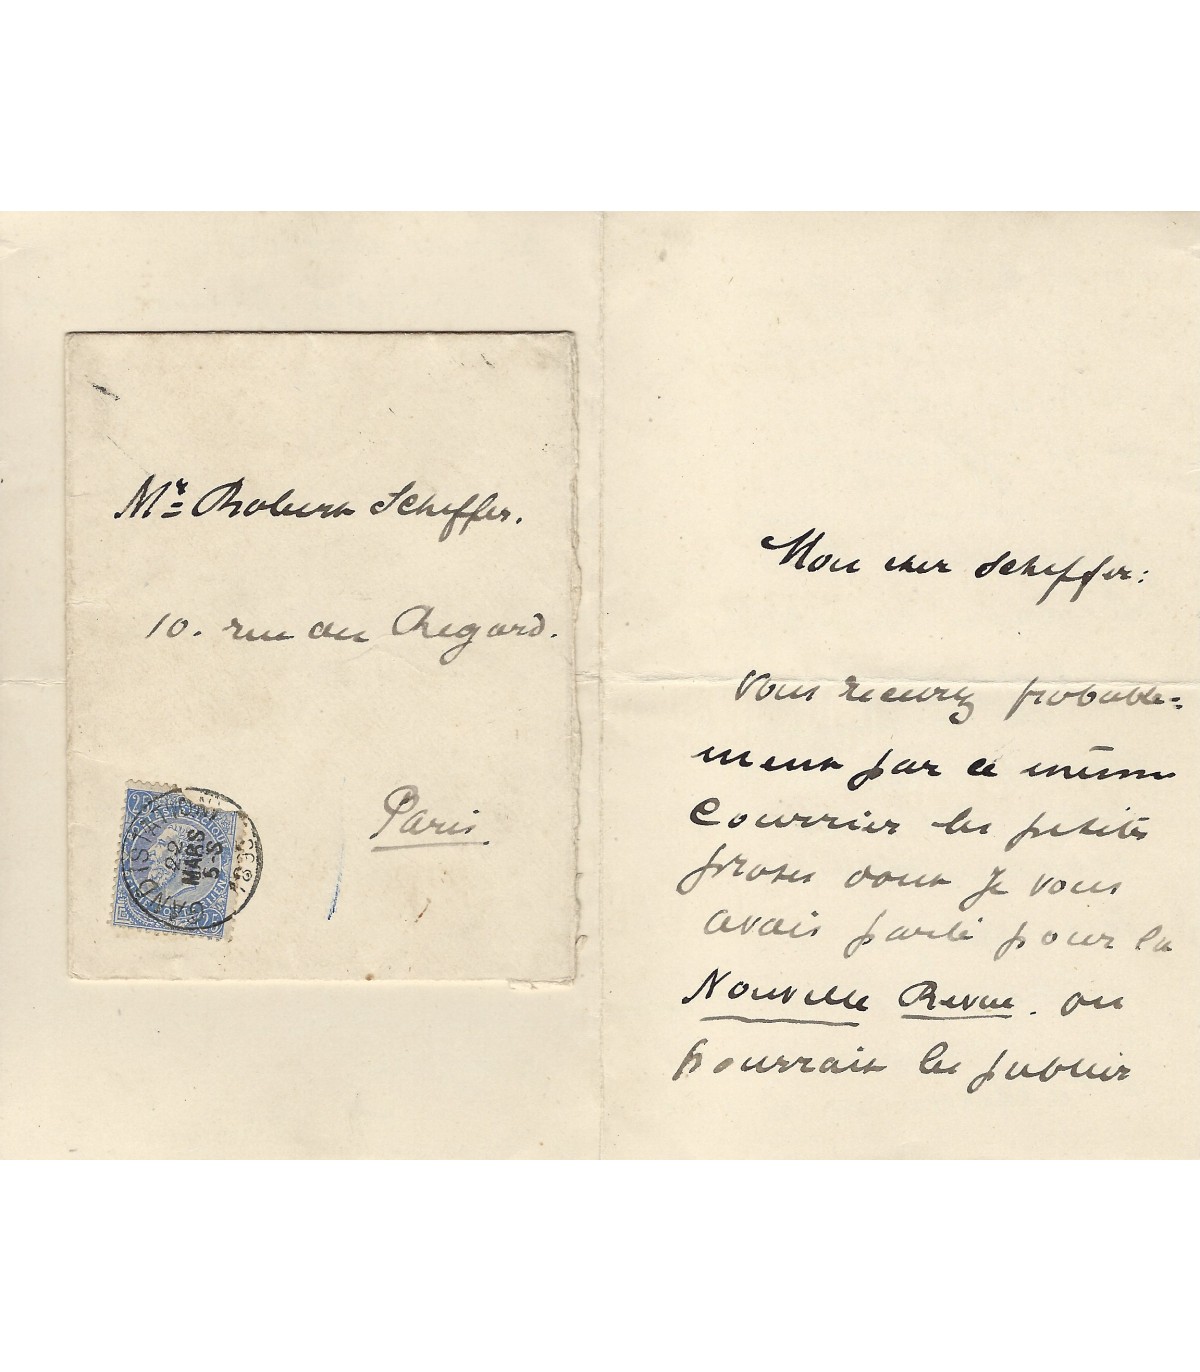 Mr Robert Scheffer.
10. rue du Regard.
Paris.
25 25
GAND
22
MARS
5-S
1895
Mon cher Scheffer:
Vous recevrez probable=
ment par ce même
courrier les petites
proses dont je vous
avais parlé pour la
Nouvelle Revue. on
pourrait les publier